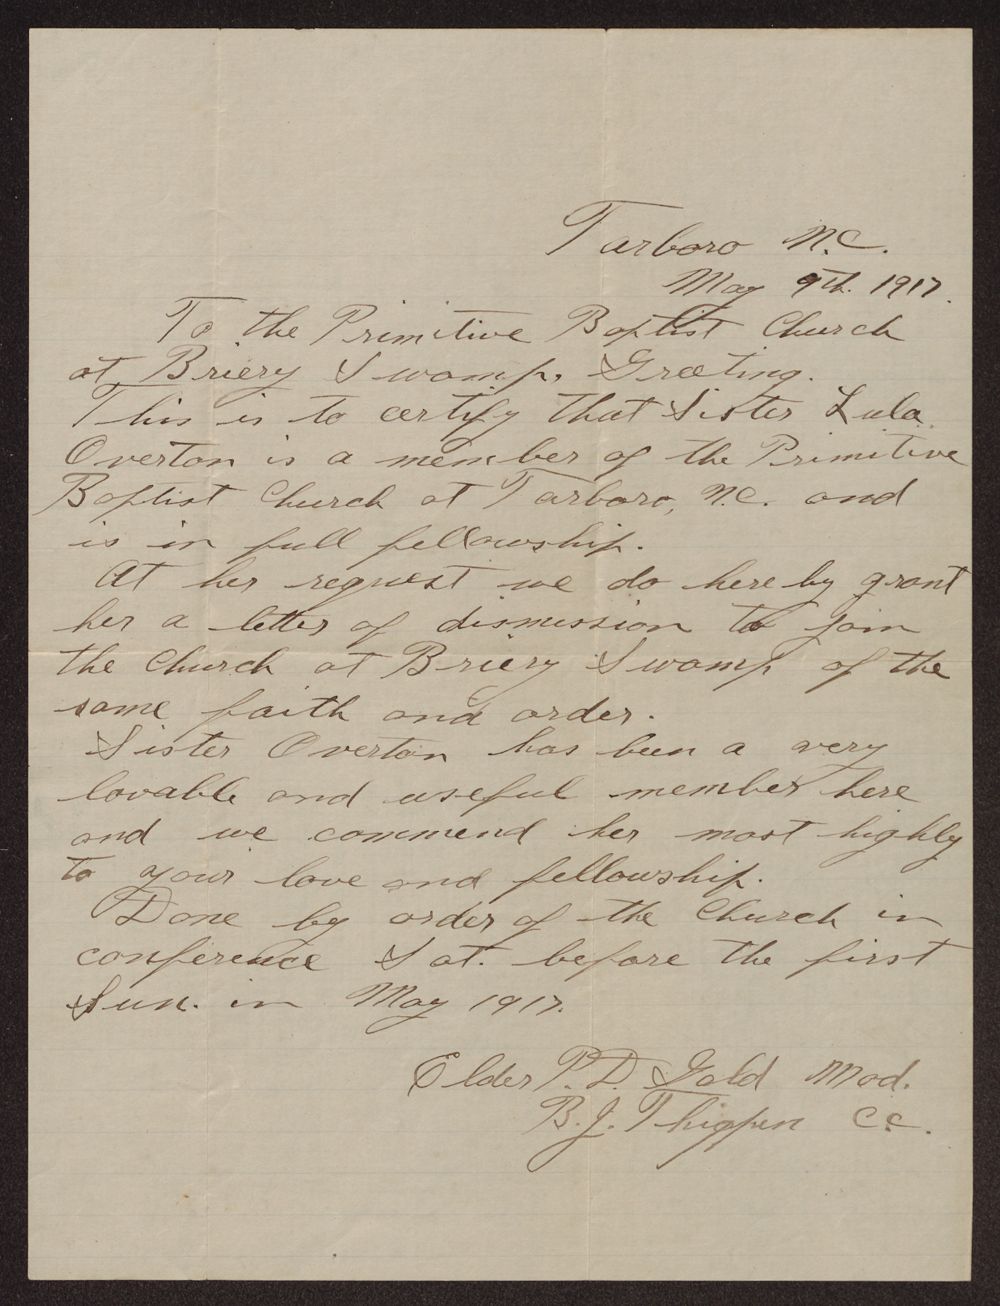 Tarboro N.C.
May 9th. 1917.
To the Primitive Baptist Church
at Briery Swamp, Greeting.
This is to certify that Sister Lula
Overton is a member of the Primitive
Baptist Church at Tarboro, N.C. and
is in full fellowship.
At her request we do here by grant
her a letter of dismission to join
the Church at Briery Swamp of the
same faith and order.
Sister Overton has been a very
lovable and useful member here
and we commend her most highly
to your love and fellowship.
Done by order of the Church in
conference Sat. before the first
Sun. in May 1917.
Elder P. D. Gold Mod.
B. J. Thigpen C.C.